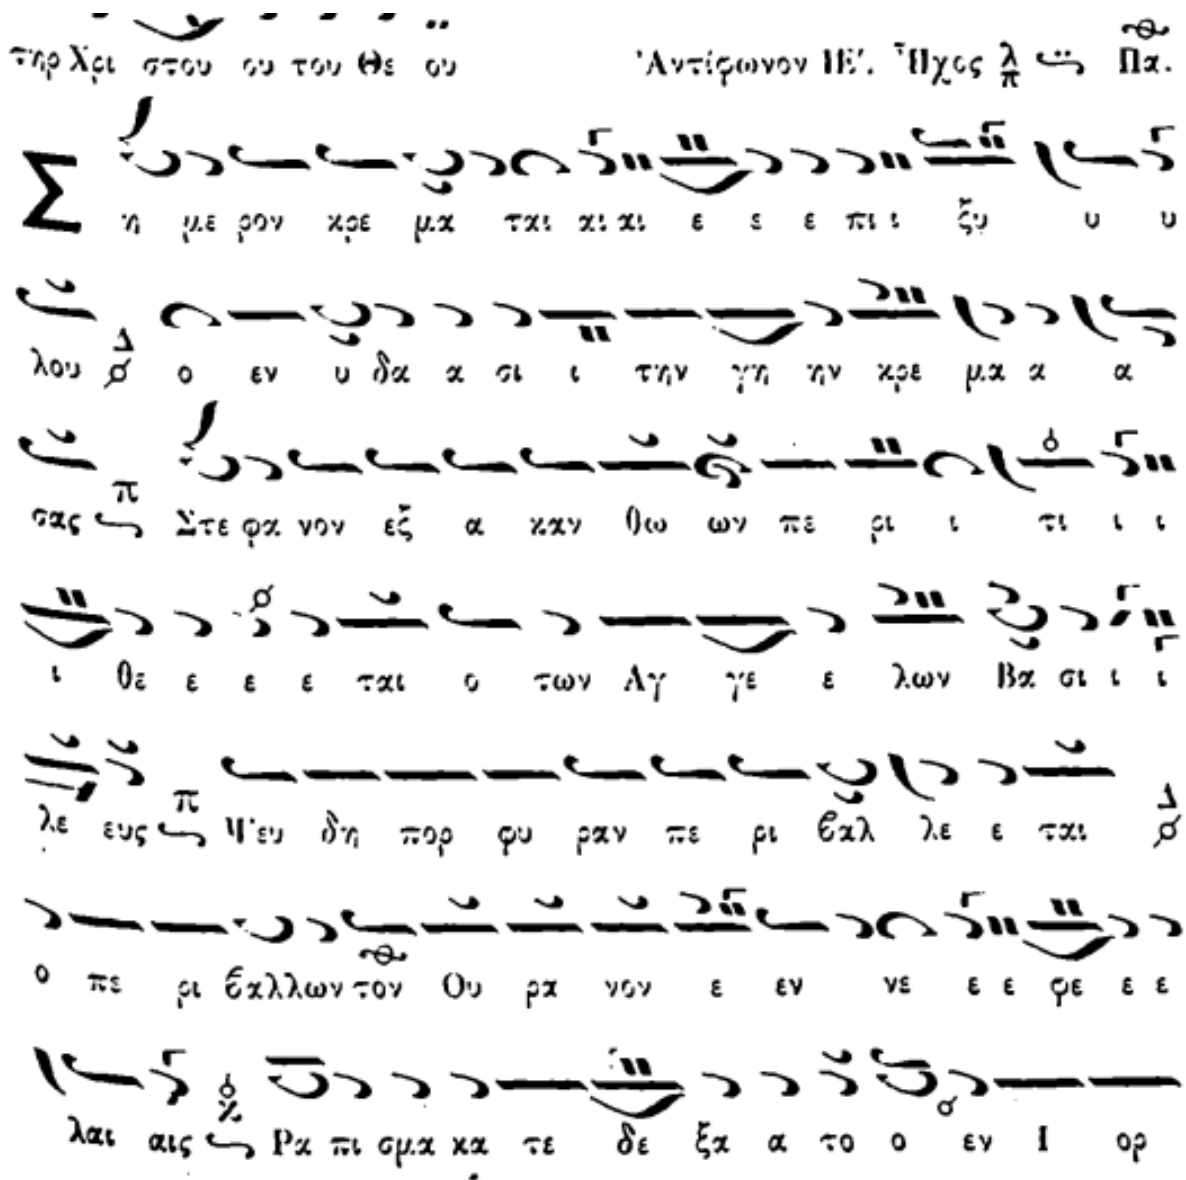 τηρ Χρι στου ου του Θε ου Ἀντίφωνον ΙΕʹ. Ἦχος λ π Πα.
Σ η με ρον κρε μα ται αι αι ε ε ε πι ι ξυ υ υ
λου ο εν υ δα α σι ι την γη ην κρε μα α α
σας π Στε φα νον εξ α καν θω ων πε ρι ι τι ι ι
ι θε ε ε ε ται ο των Αγ γε ε λων Βα σι ι ι
λε ευς π Ψευ δη πορ φυ ραν πε ρι βαλ λε ε ται
ο πε ρι βαλλων τον Ου ρα νον ε εν νε ε ε φε ε ε
λαι αις Ρα πι σμα κα τε δε ξα α το ο εν Ι ορ